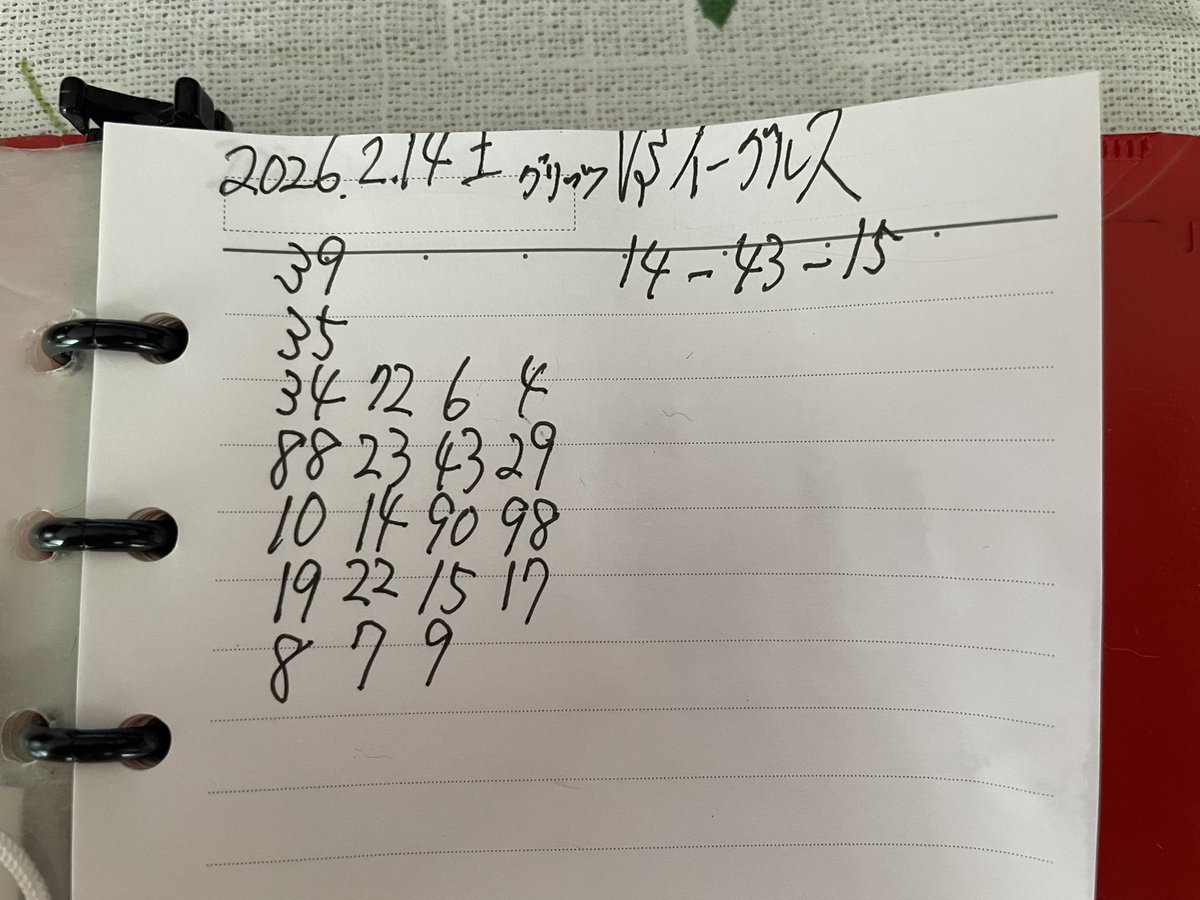 2026.2.14土 グリッツVSイーグルス
14-43-15
39
35
34 72 6 4
88 23 43 29
10 14 90 98
19 22 15 17
8 7 9